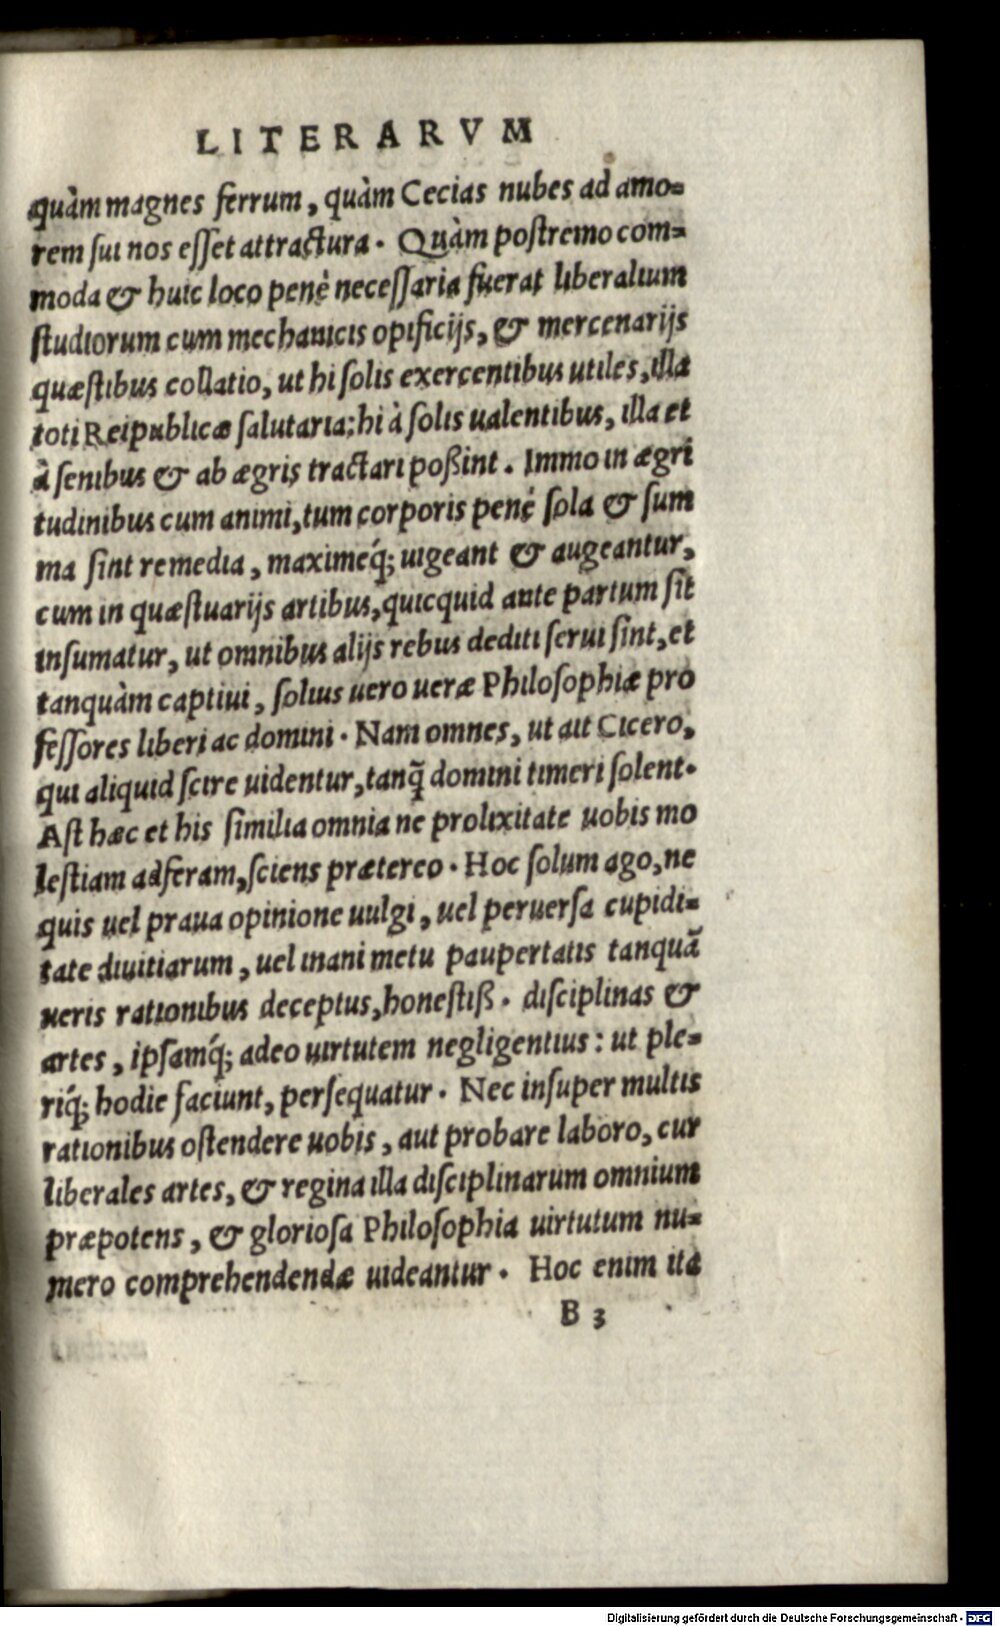 LITERARVM
quàm magnes ferrum, quàm Cecias nubes ad amo=
rem ſui nos eſſet attractura. Quàm poſtremo com=
moda & huic loco penè neceſſaria fuerat liberalium
ſtudiorum cum mechanicis opificijs, & mercenarijs
quæſtibus collatio, ut hi ſolis exercentibus utiles, illa
toti Reipublicæ ſalutaria: hi à ſolis ualentibus, illa et
à ſenibus & ab ægris tractari poßint. Immo in ægri
tudinibus cum animi, tum corporis penè ſola & ſum
ma ſint remedia, maximeq́; uigeant & augeantur,
cum in quæſtuarijs artibus, quicquid ante partum ſit
inſumatur, ut omnibus alijs rebus dediti ſerui ſint, et
tanquàm captiui, ſolius uero ueræ Philoſophiæ pro
feſſores liberi ac domini. Nam omnes, ut ait Cicero,
qui aliquid ſcire uidentur, tanq̃ domini timeri ſolent.
Aſt hæc et his ſimilia omnia ne prolixitate uobis mo
leſtiam adferam, ſciens prætereo. Hoc ſolum ago, ne
quis uel praua opinione uulgi, uel peruerſa cupidi=
tate diuitiarum, uel inani metu paupertatis tanquã
ueris rationibus deceptus, honeſtiß. diſciplinas &
artes, ipſamq́; adeo uirtutem negligentius: ut ple=
riq́; hodie faciunt, perſequatur. Nec inſuper multis
rationibus oſtendere uobis, aut probare laboro, cur
liberales artes, & regina illa diſciplinarum omnium
præpotens, & glorioſa Philoſophia uirtutum nu=
mero comprehendendæ uideantur. Hoc enim ita
B 3
Digitalisierung gefördert durch die Deutsche Forschungsgemeinschaft - DFG